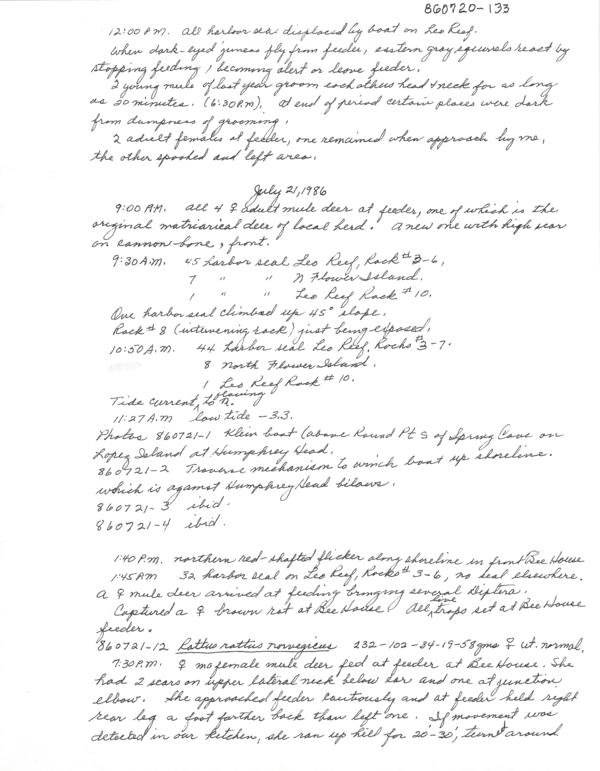 860720-133
12:00 PM. All harbor seal displaced by boat on Leo Reef.
When dark-eyed juncos fly from feeder, eastern gray squirrels react by
stopping feeding, becoming alert or leave feeder.
2 young mule of last year groom each others head & neck for as long
as 20 minutes. (6:30 P.M). At end of period certain places were dark
from dampness of grooming.
2 adult females at feeder, one remained when approach by me,
the other spooked and left area.
July 21, 1986
9:00 AM. All 4 ♀ adult mule deer at feeder, one of which is the
original matriarical deer of local herd. A new one with high scar
on cannon-bone, front.
9:30 A.M. 45 harbor seal Leo Reef, Rock # 3-6,
7 " " N Flower Island.
1 " " Leo Reef Rock # 10.
One harbor seal climbed up 45° slope.
Rock # 8 (intervening rock) just being exposed.
10:50 A.M. 44 harbor seal Leo Reef, Rocks # 3-7.
8 North Flower Island.
1 Leo Reef Rock # 10.
Tide current flowing to N.
11:27 A.M low tide -3.3.
Photos 860721-1 Klein boat (above Round Pt S of Spring Cove on
Lopez Island at Humphrey Head.
860721-2 Traverse mechanism to winch boat up shoreline.
which is against Humphrey Head bilaws.
860721-3 ibid.
860721-4 ibid.
1:40 P.M. northern red-shafted flicker along shoreline in front Bee House
1:45 PM 32 harbor seal on Leo Reef, Rocks # 3-6, no seal elsewhere.
A ♀ mule deer arrived at feeding bringing several Diptera.
Captured a ♀ brown rat at Bee House All live traps set at Bee House
feeder.
860721-12 Rattus rattus norvegicus 232-102-34-19-58gms ♀ ut. normal.
7:30 P.M. ♀ mo female mule deer fed at feeder at Bee House. She
had 2 scars on upper lateral neck below ear and one at junction
elbow. She approached feeder cautiously and at feeder held right
rear leg a foot farther back than left one. If movement was
detected in our kitchen, she ran up hill for 20-30', turn around